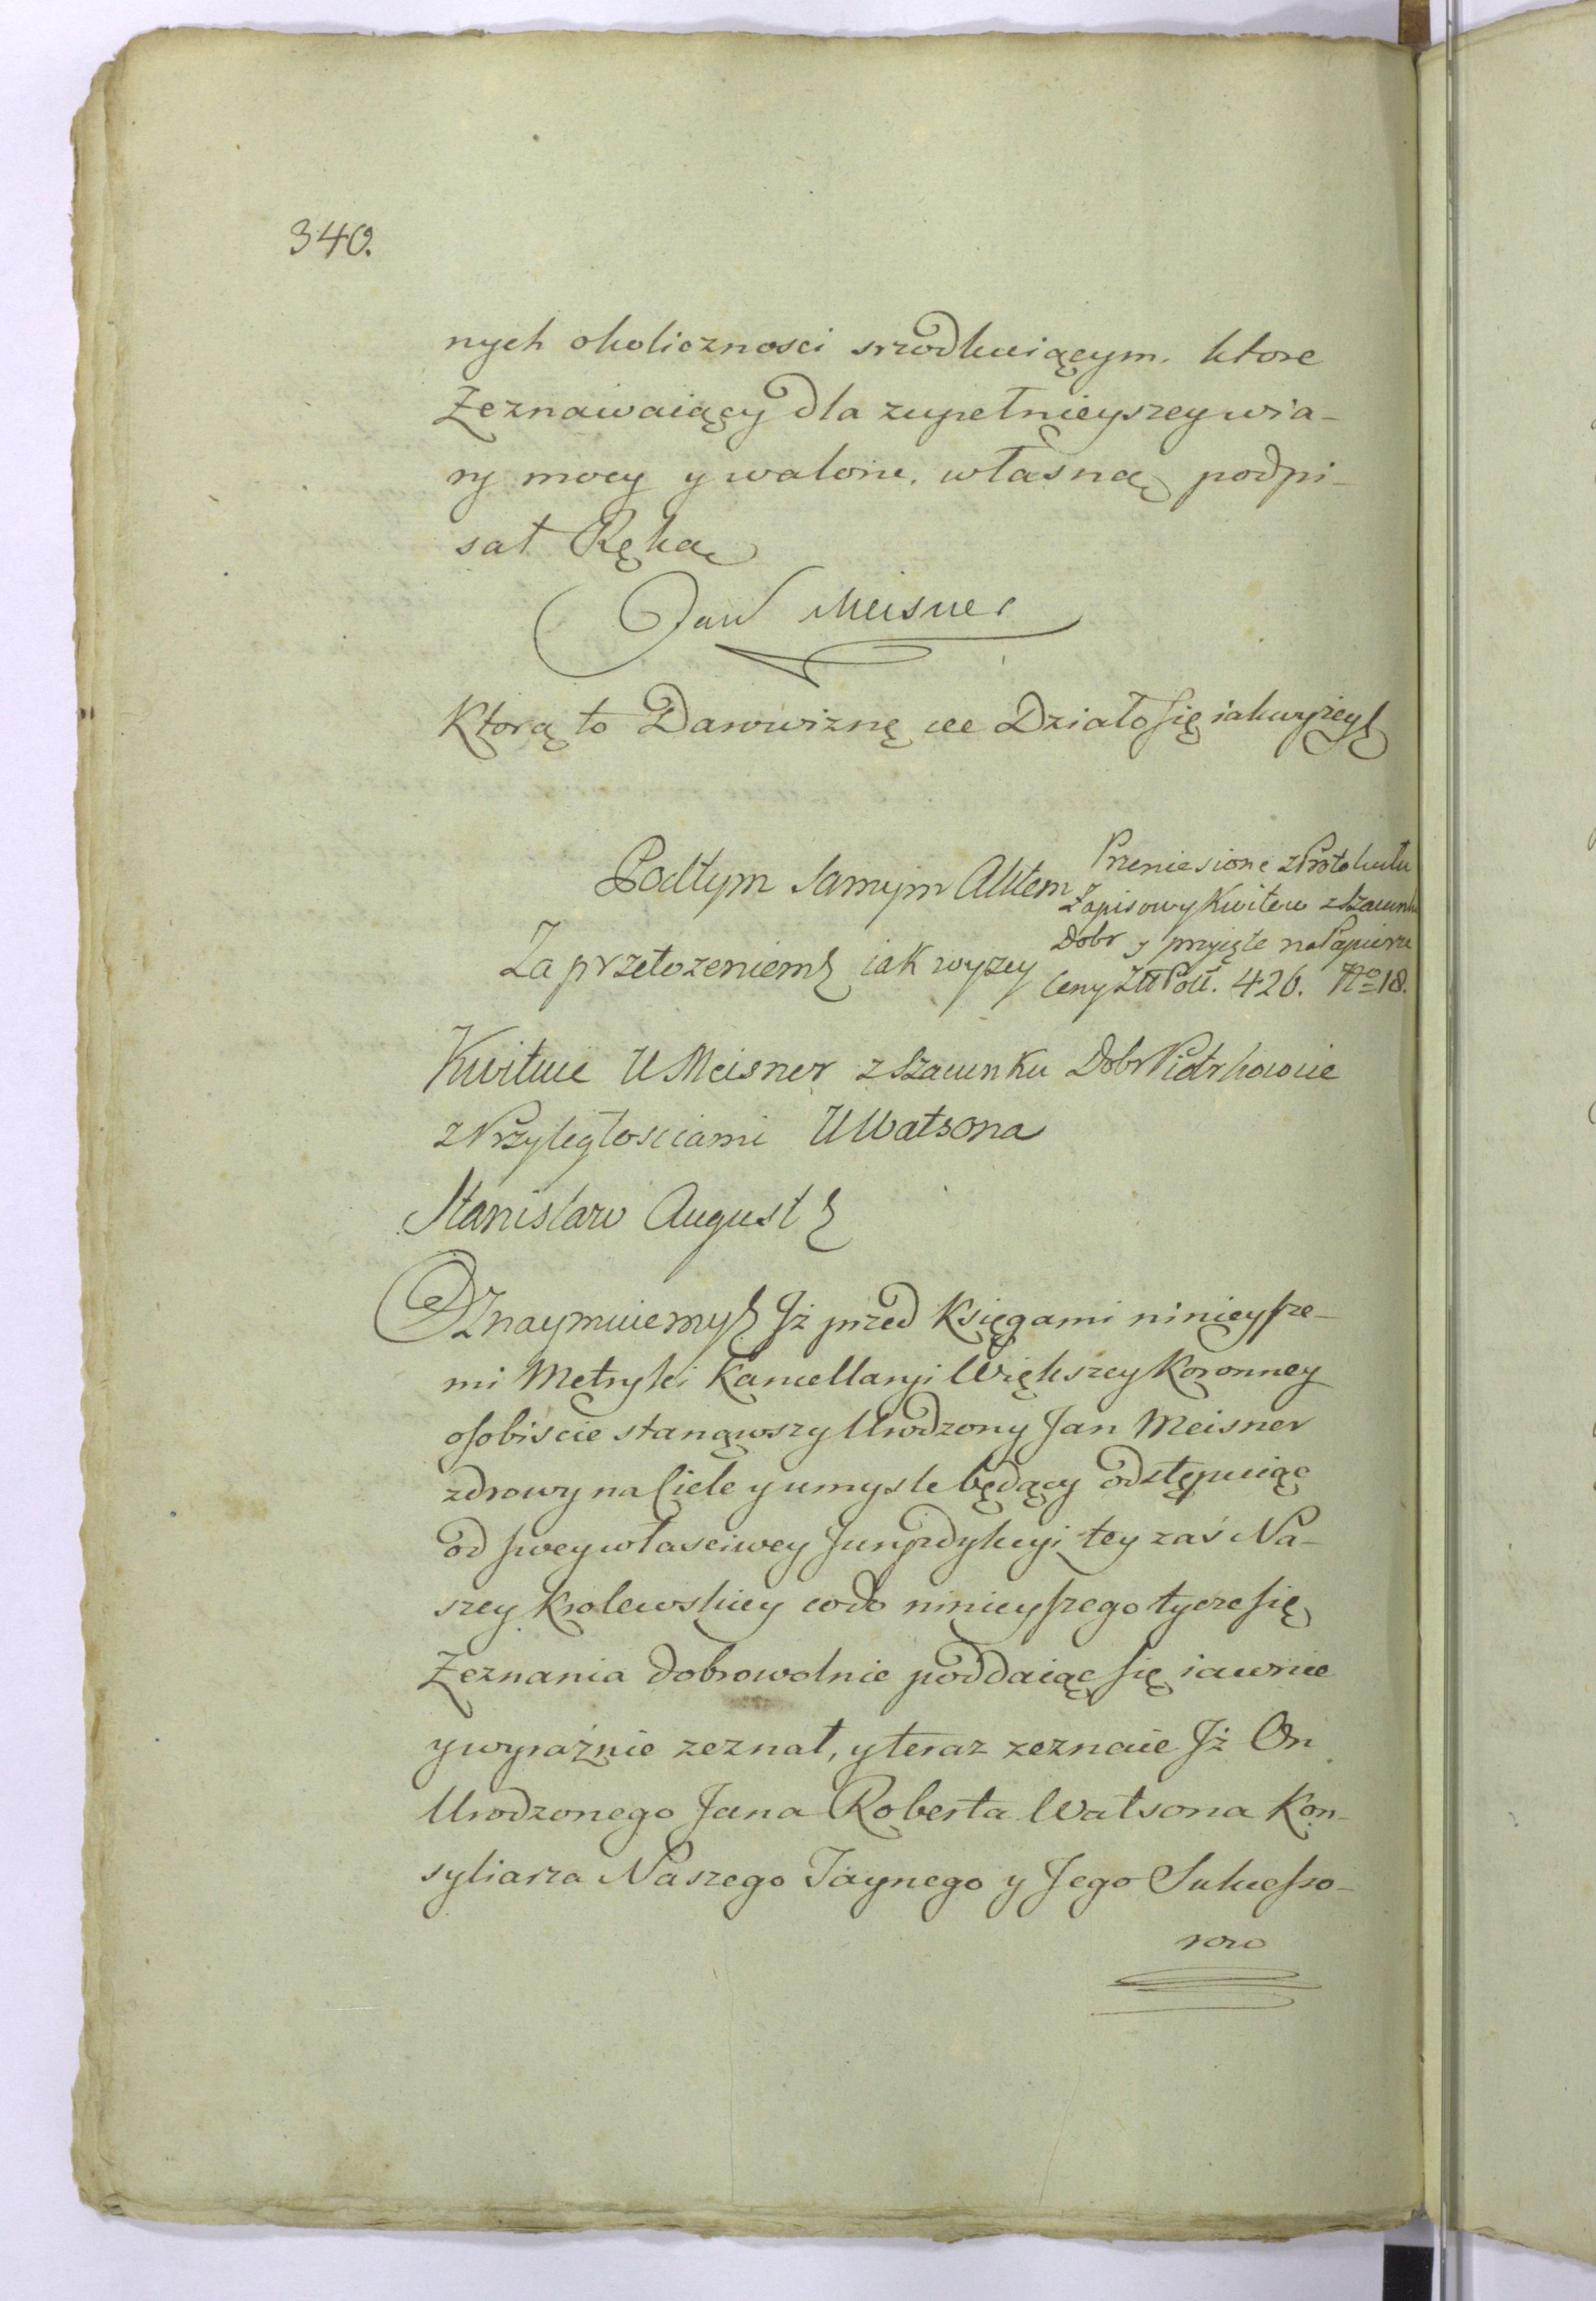 340.
nych okolicznosci srzodkuiącym. ktore
Zeznawaiący dla zupełnieyszey wia-
ry mocy y waloru, własną podpi-
sał Ręką
Jan Meisner
Którą to Darowiznę ... Działo się iak wyżey
Pod tym Samym Aktem
Za przełożeniem iak wyzey
Przeniesione z Protokułu
Zapisowy Kwitow z Szacunku
Dobr y przyięte na Papierze
Ceny Złł Poll. 426. No 18.
Kwituie U Meisner z Szacunku Dobr Piotrkowie
z Przyległosciami U Watsona
Stanisław August
Oznaymuiemy Jż przed Księgami ninieysze-
mi Metryki Kancellaryi Większey Koronney
osobiście stanąwszy Urodzony Jan Meisner
zdrowy na Ciele y umysle będący odstępuiąc
od swey własciwey Juryzdykcyi tey zaś Na-
szey Krolewskiey co do ninieyszego tycze się
Zeznania dobrowolnie poddaiąc się iawnie
y wyraźnie zeznał, y teraz zeznaie Jż On
Urodzonego Jana Roberta Watsona Kon-
syliarza Naszego Taynego y Jego Sukcesso-
row